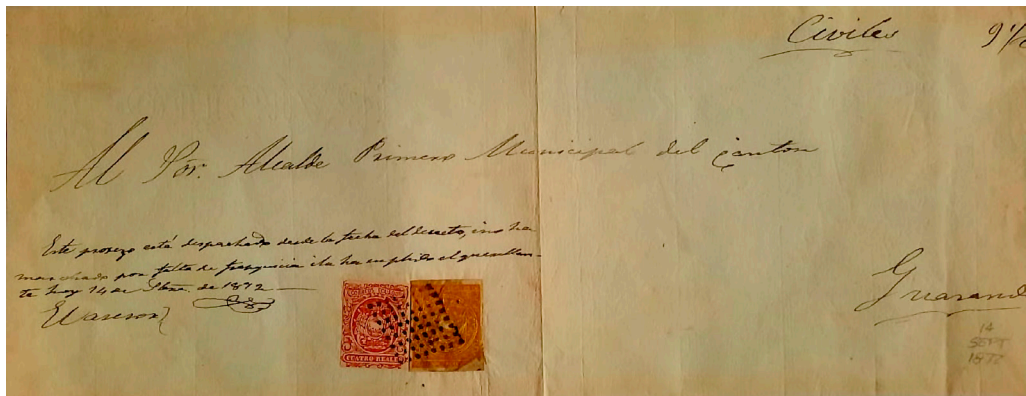 Civiles 9 1/2
Al Sor. Alcalde Primero Municipal del canton
Este proceso está despachado desde la fecha del decreto, i no ha
marchado por falta de franquicia i la ha suplido el querellan-
te hoy 14 de Sbre. de 1872
Guarand
CUATRO REALES
14
SEPT
1872